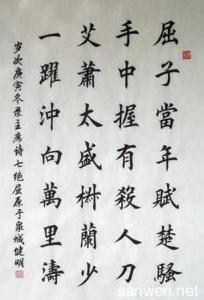 屈子當年賦楚騷
手中握有殺人刀
艾蕭太盛椒蘭少
一躍沖向萬里濤
歲次庚寅冬录主席诗七绝屈原于泉城健明
sanwen.net